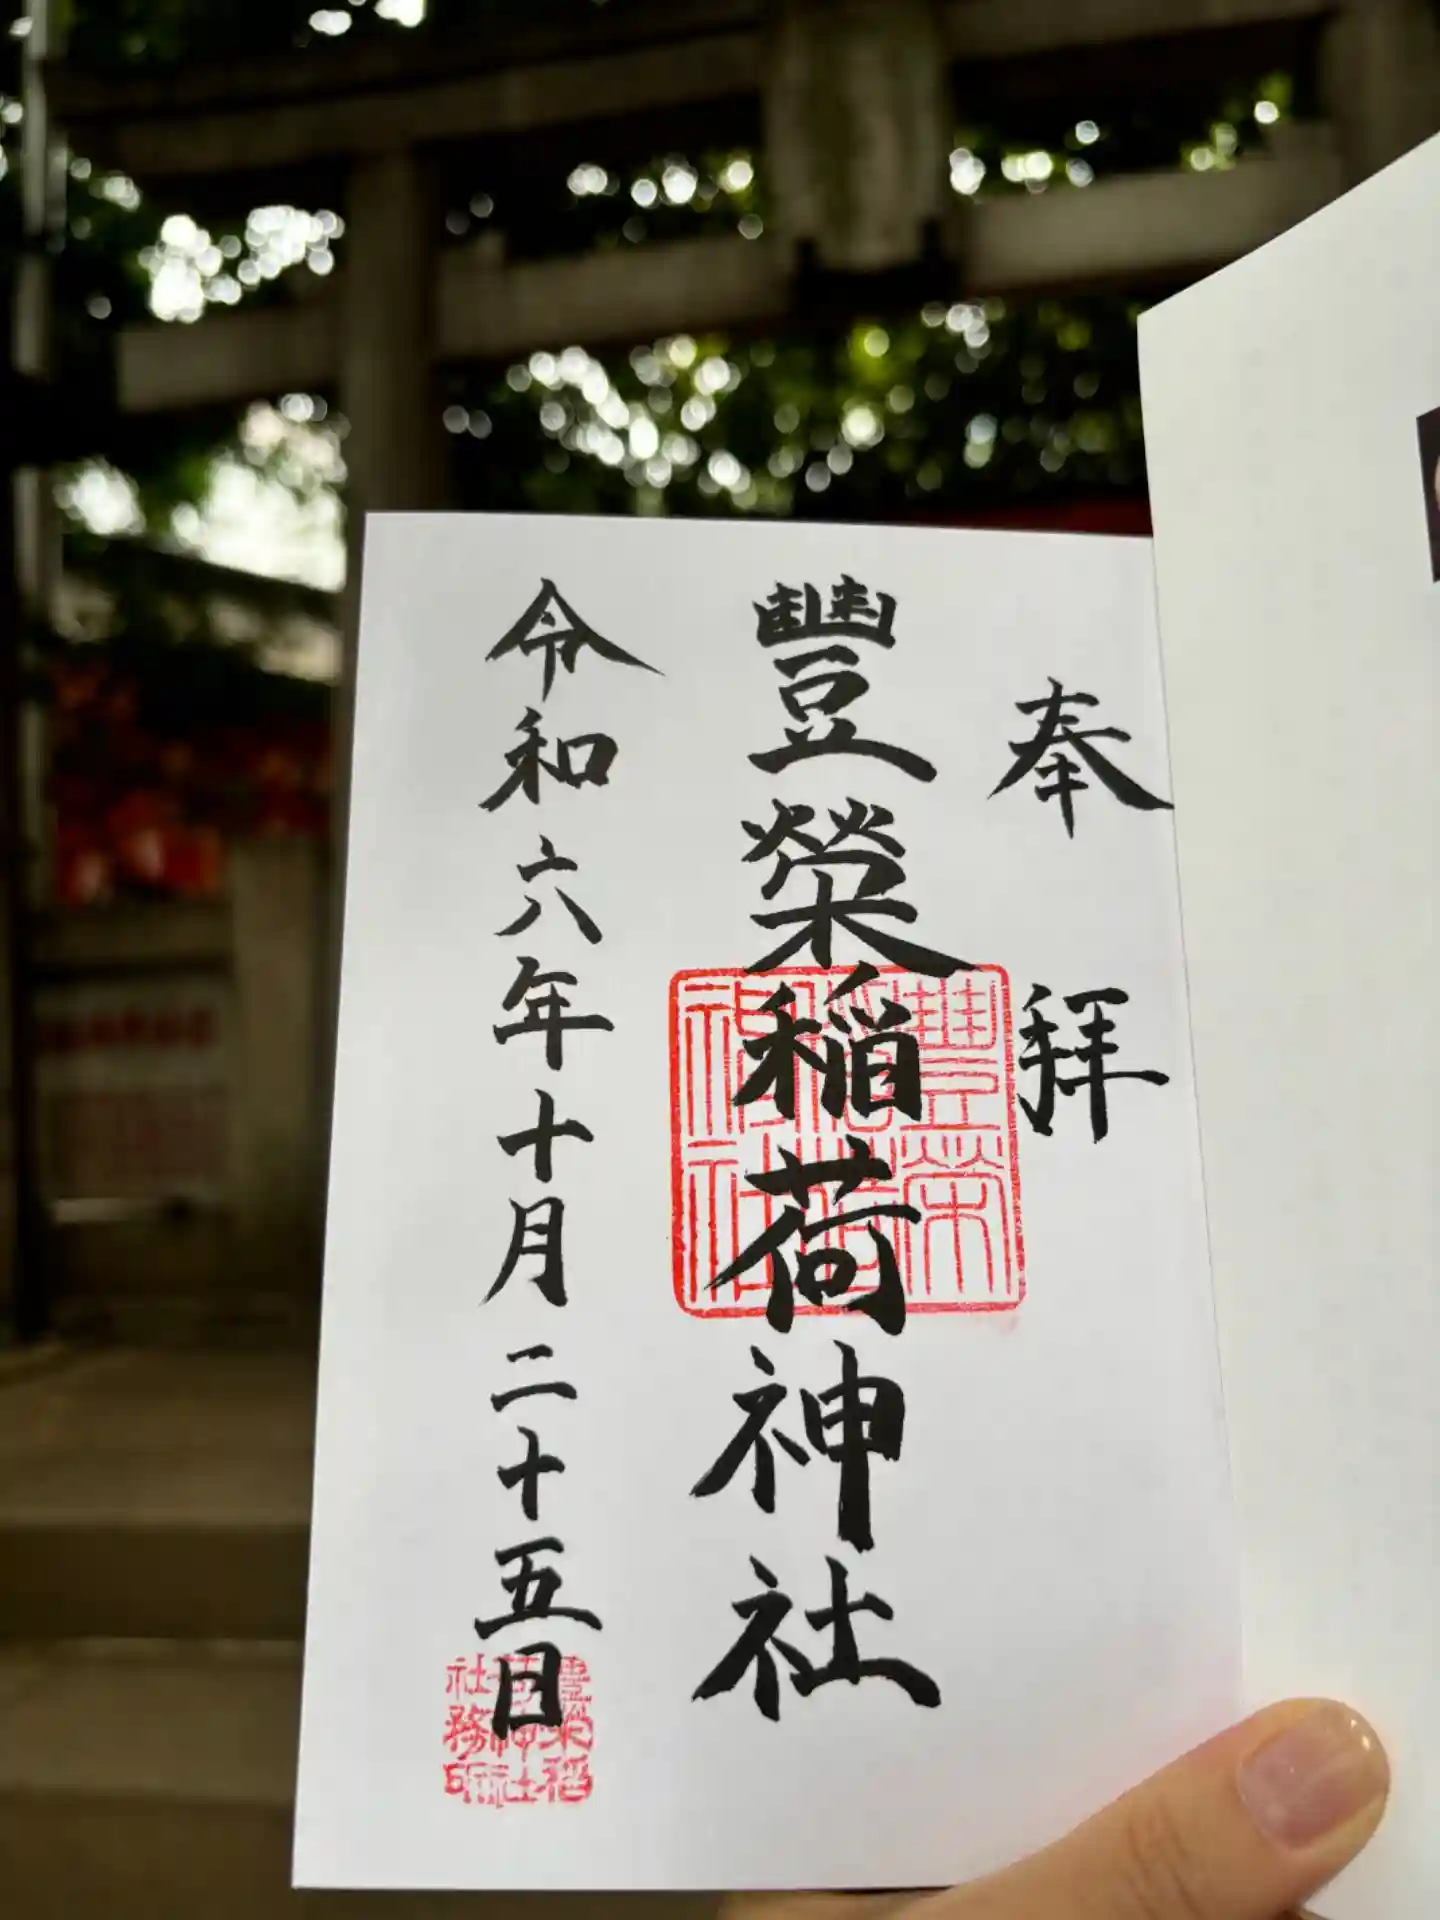 奉拝
豐榮稲荷神社
令和六年十月二十五日
豐榮稲荷神社
豊栄稲荷神社社務所